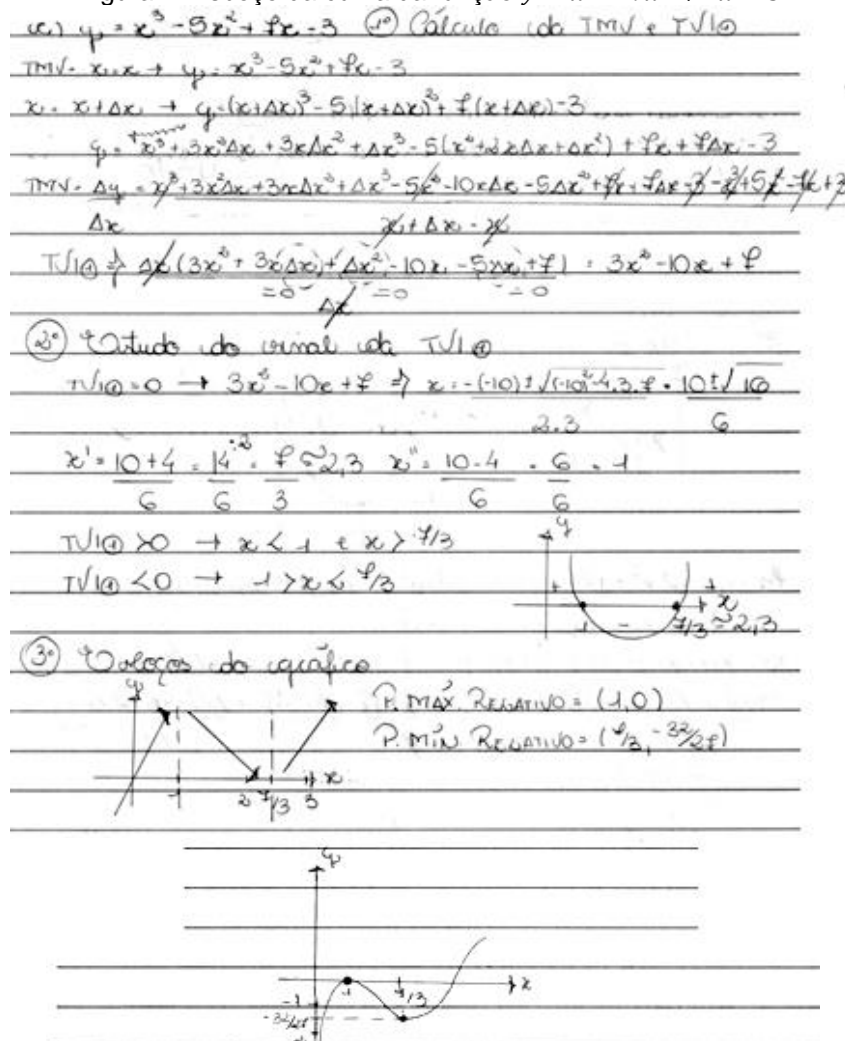 c) y = x³ - 5x² + 7x - 3 1º Cálculo da TMV e TVI
TMV = x = x → y = x³ - 5x² + 7x - 3
x = x + Δx → y = (x+Δx)³ - 5(x+Δx)² + 7(x+Δx) - 3
y = x³ + 3x²Δx + 3xΔx² + Δx³ - 5(x² + 2xΔx + Δx²) + 7x + 7Δx - 3
TMV = Δy = x³ + 3x²Δx + 3xΔx² + Δx³ - 5x² - 10xΔx - 5Δx² + 7x + 7Δx - 3 - x³ + 5x² - 7x + 3
Δx x + Δx - x
TVI ⇒ Δx(3x² + 3xΔx + Δx² - 10x - 5Δx + 7) = 3x² - 10x + 7
=0 =0 =0
Δx
2º Estudo do sinal da TVI
TVI = 0 → 3x² - 10x + 7 ⇒ x = -(-10) ± √(-10)² - 4.3.7 = 10 ± √16
2.3 6
x' = 10+4 = 14 :2 = 7 ≅ 2,3 x'' = 10-4 = 6 = 1
6 6 3 6 6
TVI > 0 → x < 1 e x > 7/3
TVI < 0 → 1 > x < 7/3
y
+ + x
1 - 7/3 ≅ 2,3
3º Esboços do gráfico
y
P. MÁX. RELATIVO = (1,0)
P. MÍN. RELATIVO = (7/3, -32/27)
x
1 2 7/3 3
y
x
1 7/3
-1
-32/27